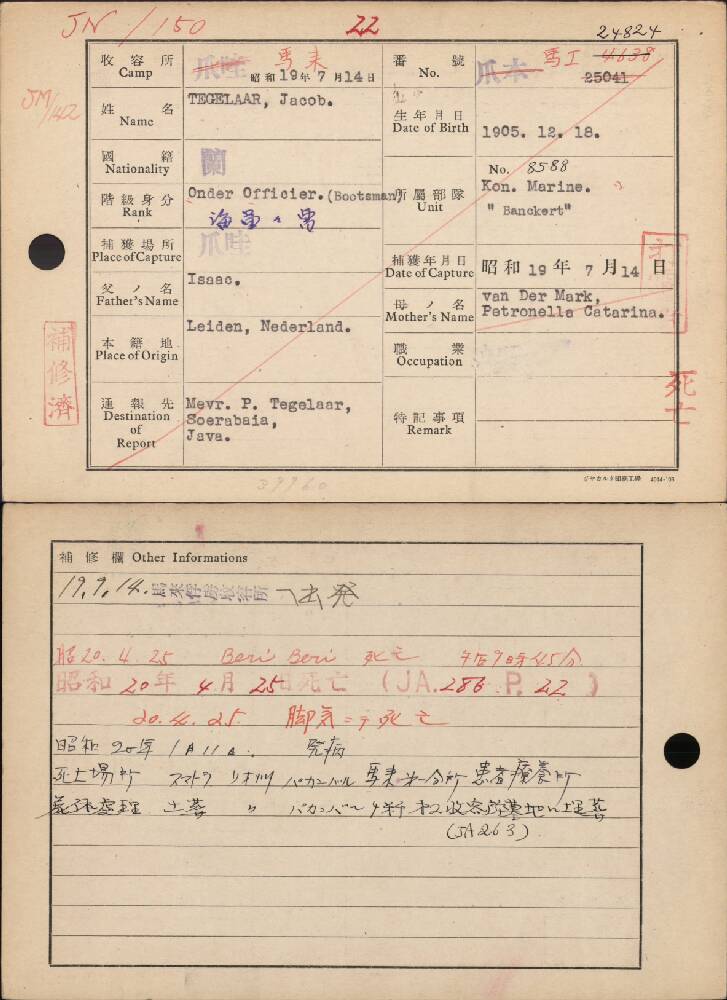 JN/150 22 24824
JM/142
收容所 Camp 爪哇 馬来 昭和19年7月14日
番號 No. 爪本 馬工 4638 25041
姓名 Name TEGELAAR, Jacob.
生年月日 Date of Birth 1905. 12. 18.
國籍 Nationality 蘭
階級身分 Rank Onder Officier. (Bootsman)
所屬部隊 Unit No. 8588
Kon. Marine.
" Banckert"
捕獲場所 Place of Capture 爪哇
捕獲年月日 Date of Capture 昭和19年7月14日
父ノ名 Father's Name Isaac.
母ノ名 Mother's Name van Der Mark,
Petronella Catarina.
本籍地 Place of Origin Leiden, Nederland.
職業 Occupation
通報先 Destination of Report Mevr. P. Tegelaar,
Soerabaia,
Java.
特記事項 Remark
補修濟
死亡
ジヤカルタ印刷工場
補修欄 Other Informations
19.9.14. 馬来俘虜收容所ヘ出発
昭20.4.25 Beri Beri 死亡 午后9時45分
昭和20年4月25日死亡 (JA.286 P.22)
20.4.25 脚気ニテ死亡
昭和20年1月11日 発病
死亡場所 スマトラ リオ州 パカンバル 馬来第一分所患者療養所
土葬 〃 パカンバル
(JA263)